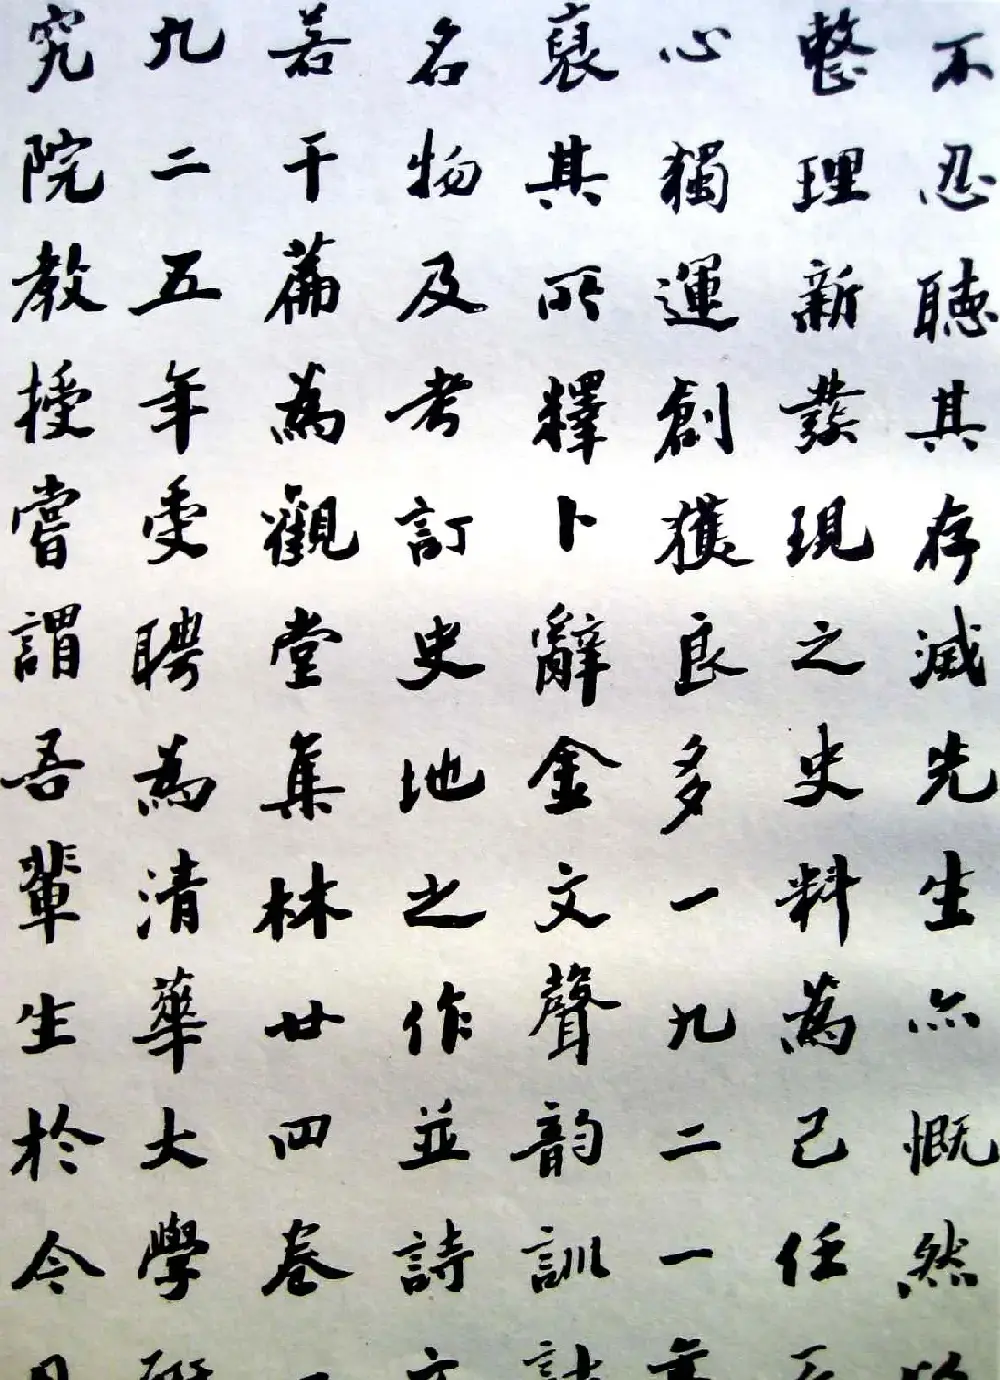 不忍聽其存滅先生亦慨然
整理新發現之史料為己任
心獨運創獲良多一九二一
裒其所釋卜辭金文聲韵訓
名物及考訂史地之作並詩
若干篇為觀堂集林廿四卷
九二五年受聘為清華大學
究院教授嘗謂吾輩生於今